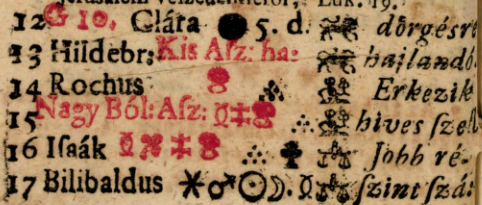 Jerusalem veszedelmeröl, Luk. 19.
12 G 10. Clára ● 5. d. dörgésre
13 Hildebr: Kis Aſz: ha: hajlandó.
14 Rochus Erkezik
15 Nagy Ból: Aſz: hives ſzel
16 Iſaák Jobb ré-
17 Bilibaldus ⚹♂☉☽. ☿ ſzint ſzá: